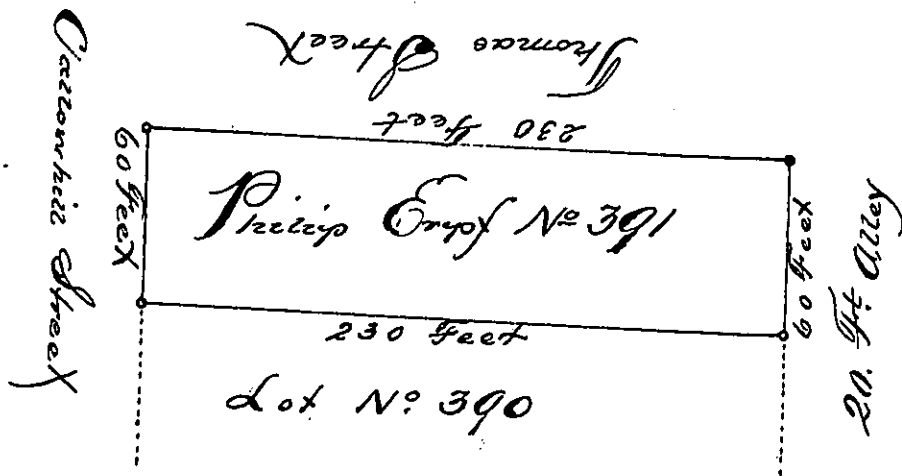 Thomas Street
230 Feet
Callowhill Street
60 Feet
Philip Empf Nº 391
60 Feet
20. Ft. Alley
230 Feet
Lot Nº 390